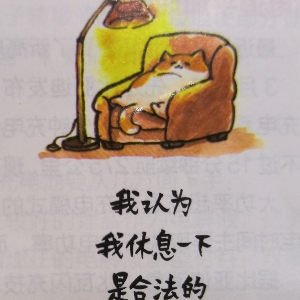 我认为
我休息一下
是合法的